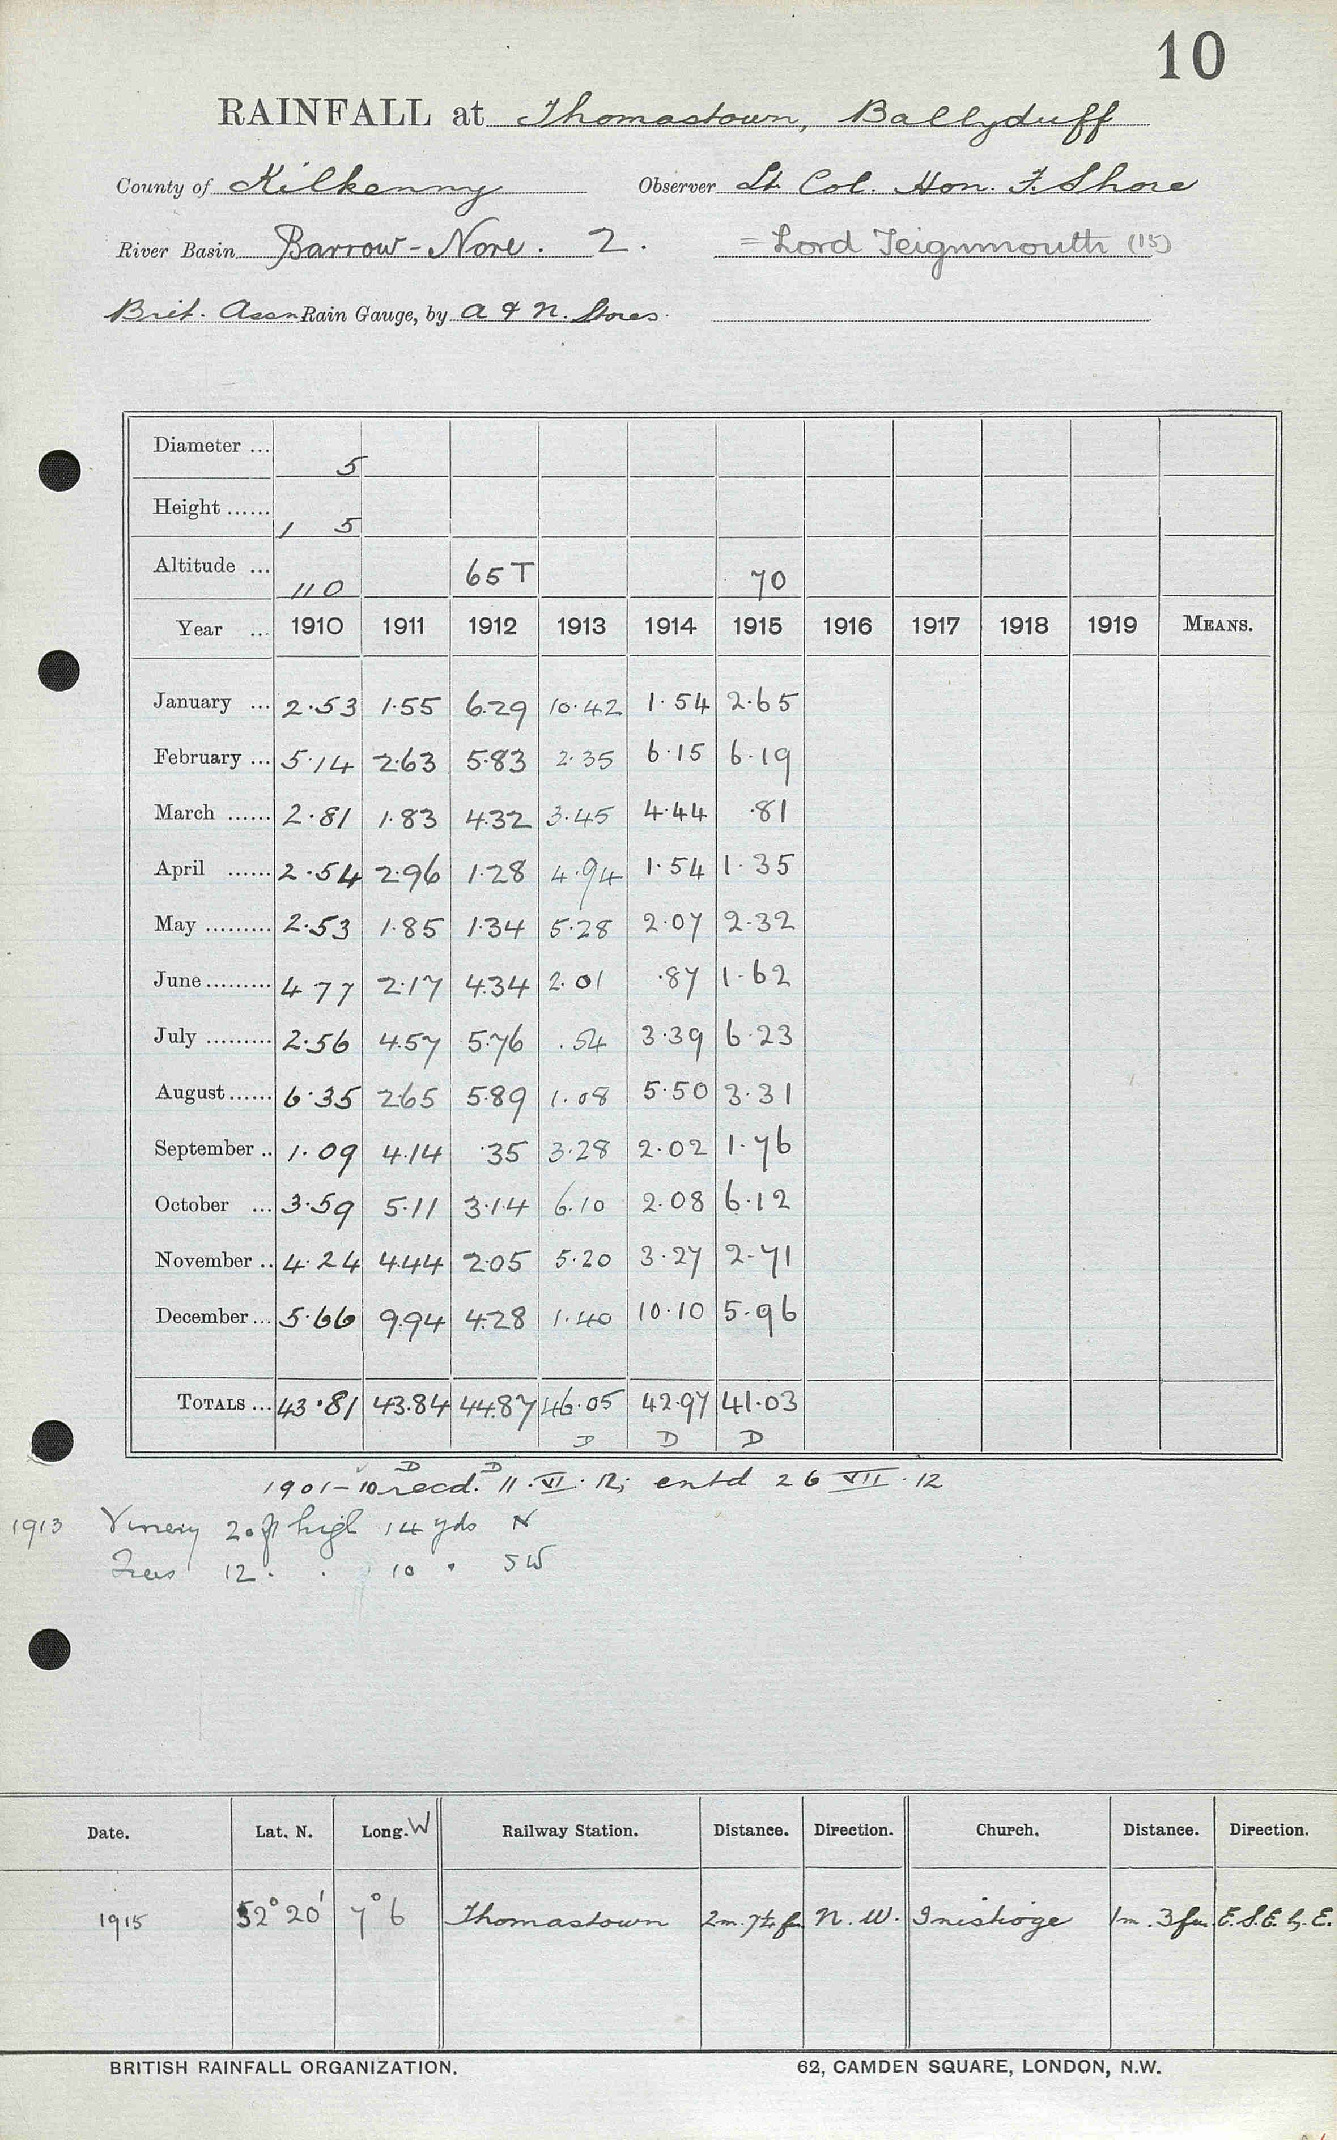 10
RAINFALL at Thomastown, Ballyduff
County of Kilkenny Observer Lt. Col. Hon. F. Shore
River Basin Barrow-Nore. 2. = Lord Teignmouth (15)
Brit. Assn Rain Gauge, by A & N. Stores
Diameter ... 5
Height ...... 1 5
Altitude ... 110 65T 70
Year ... 1910 1911 1912 1913 1914 1915 1916 1917 1918 1919 MEANS.
January ... 2.53 1.55 6.29 10.42 1.54 2.65
February ... 5.14 2.63 5.83 2.35 6.15 6.19
March ...... 2.81 1.83 4.32 3.45 4.44 .81
April ...... 2.54 2.96 1.28 4.94 1.54 1.35
May ......... 2.53 1.85 1.34 5.28 2.07 2.32
June ......... 4 77 2.17 4.34 2.01 .87 1.62
July ......... 2.56 4.57 5.76 .54 3.39 6.23
August ...... 6.35 2.65 5.89 1.08 5.50 3.31
September .. 1.09 4.14 .35 3.28 2.02 1.76
October ... 3.59 5.11 3.14 6.10 2.08 6.12
November .. 4.24 4.44 2.05 5.20 3.27 2.71
December ... 5.66 9.94 4.28 1.40 10.10 5.96
TOTALS ... 43.81 43.84 44.87 46.05 42.97 41.03
D D D
D D
1901-10 recd. 11.VI.12; entd 26 VII.12
1913 Vinery 20 ft high 14 yds N
Trees 12 . . 10 . SW
Date. Lat. N. Long. W Railway Station. Distance. Direction. Church. Distance. Direction.
1915 52° 20' 7° 6 Thomastown 2m. 7½ f. N.W. Inistioge 1m. 3 fur. E.S.E. by E.
BRITISH RAINFALL ORGANIZATION. 62, CAMDEN SQUARE, LONDON, N.W.